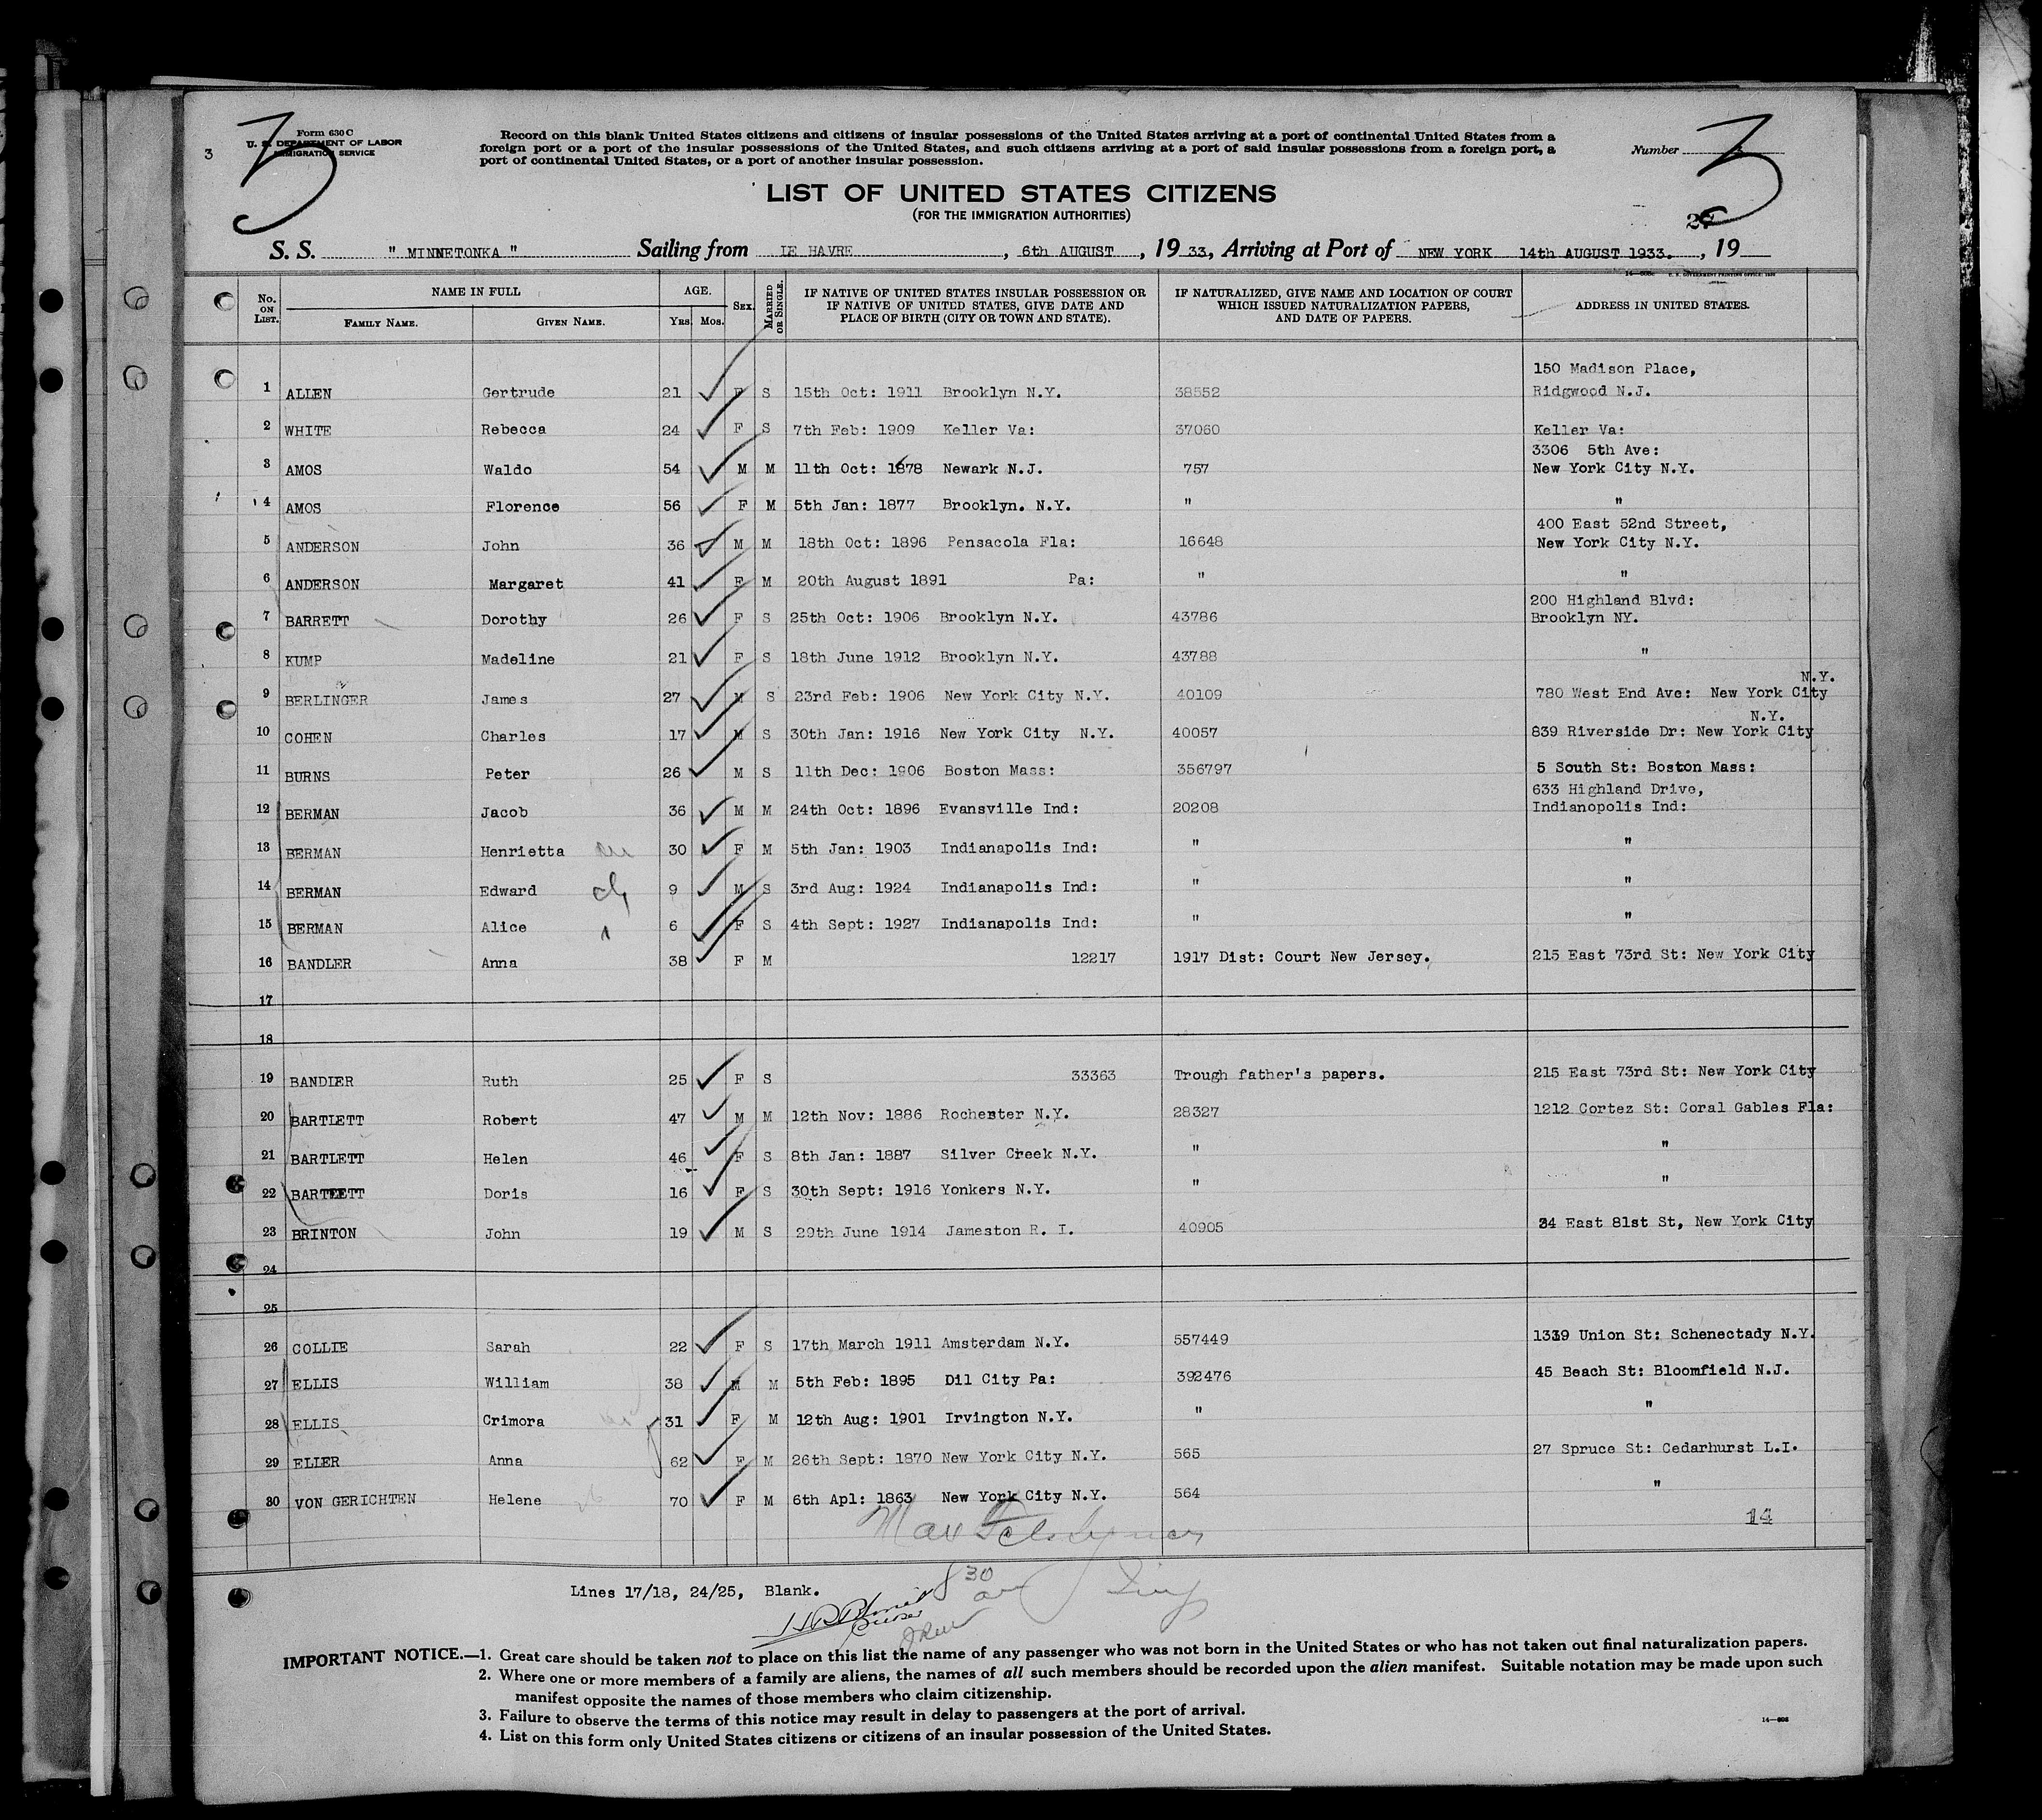 3
3
Form 630 C
U. S. DEPARTMENT OF LABOR
IMMIGRATION SERVICE
3
Record on this blank United States citizens and citizens of insular possessions of the United States arriving at a port of continental United States from a
foreign port or a port of the insular possessions of the United States, and such citizens arriving at a port of said insular possessions from a foreign port, a
port of continental United States, or a port of another insular possession.
Number
LIST OF UNITED STATES CITIZENS
(FOR THE IMMIGRATION AUTHORITIES)
S. S. " MINNETONKA " Sailing from LE HAVRE, 6th AUGUST, 19 33, Arriving at Port of NEW YORK 14th AUGUST 1933., 19
No. ON LIST. NAME IN FULL FAMILY NAME. GIVEN NAME. AGE. YRS. MOS. SEX. MARRIED OR SINGLE.
IF NATIVE OF UNITED STATES INSULAR POSSESSION OR
IF NATIVE OF UNITED STATES, GIVE DATE AND
PLACE OF BIRTH (CITY OR TOWN AND STATE).
IF NATURALIZED, GIVE NAME AND LOCATION OF COURT
WHICH ISSUED NATURALIZATION PAPERS,
AND DATE OF PAPERS.
ADDRESS IN UNITED STATES.
150 Madison Place,
1 ALLEN Gertrude 21 F S 15th Oct: 1911 Brooklyn N.Y. 38552 Ridgwood N.J.
2 WHITE Rebecca 24 F S 7th Feb: 1909 Keller Va: 37060 Keller Va:
3306 5th Ave:
3 AMOS Waldo 54 M M 11th Oct: 1878 Newark N.J. 757 New York City N.Y.
4 AMOS Florence 56 F M 5th Jan: 1877 Brooklyn. N.Y. " "
400 East 52nd Street,
5 ANDERSON John 36 M M 18th Oct: 1896 Pensacola Fla: 16648 New York City N.Y.
6 ANDERSON Margaret 41 F M 20th August 1891 Pa: " "
200 Highland Blvd:
7 BARRETT Dorothy 26 F S 25th Oct: 1906 Brooklyn N.Y. 43786 Brooklyn NY.
8 KUMP Madeline 21 F S 18th June 1912 Brooklyn N.Y. 43788 "
N.Y.
9 BERLINGER James 27 M S 23rd Feb: 1906 New York City N.Y. 40109 780 West End Ave: New York City
N.Y.
10 COHEN Charles 17 M S 30th Jan: 1916 New York City N.Y. 40057 839 Riverside Dr: New York City
11 BURNS Peter 26 M S 11th Dec: 1906 Boston Mass: 356797 5 South St: Boston Mass:
633 Highland Drive,
12 BERMAN Jacob 36 M M 24th Oct: 1896 Evansville Ind: 20208 Indianopolis Ind:
13 BERMAN Henrietta 30 F M 5th Jan: 1903 Indianapolis Ind: " "
14 BERMAN Edward 9 M S 3rd Aug: 1924 Indianapolis Ind: " "
15 BERMAN Alice 6 F S 4th Sept: 1927 Indianapolis Ind: " "
16 BANDLER Anna 38 F M 12217 1917 Dist: Court New Jersey. 215 East 73rd St: New York City
17
18
19 BANDLER Ruth 25 F S 33363 Trough father's papers. 215 East 73rd St: New York City
20 BARTLETT Robert 47 M M 12th Nov: 1886 Rochester N.Y. 28327 1212 Cortez St: Coral Gables Fla:
21 BARTLETT Helen 46 F S 8th Jan: 1887 Silver Creek N.Y. " "
22 BARTLETT Doris 16 F S 30th Sept: 1916 Yonkers N.Y. " "
23 BRINTON John 19 M S 29th June 1914 Jameston R. I. 40905 34 East 81st St, New York City
24
25
26 COLLIE Sarah 22 F S 17th March 1911 Amsterdam N.Y. 557449 1339 Union St: Schenectady N.Y.
27 ELLIS William 38 M M 5th Feb: 1895 Dil City Pa: 392476 45 Beach St: Bloomfield N.J.
28 ELLIS Crimora 31 F M 12th Aug: 1901 Irvington N.Y. " "
29 ELLER Anna 62 F M 26th Sept: 1870 New York City N.Y. 565 27 Spruce St: Cedarhurst L.I.
30 VON GERICHTEN Helene 70 F M 6th Apl: 1863 New York City N.Y. 564 "
14
Lines 17/18, 24/25, Blank.
30
IMPORTANT NOTICE.—1. Great care should be taken not to place on this list the name of any passenger who was not born in the United States or who has not taken out final naturalization papers.
2. Where one or more members of a family are aliens, the names of all such members should be recorded upon the alien manifest. Suitable notation may be made upon such
manifest opposite the names of those members who claim citizenship.
3. Failure to observe the terms of this notice may result in delay to passengers at the port of arrival.
4. List on this form only United States citizens or citizens of an insular possession of the United States.